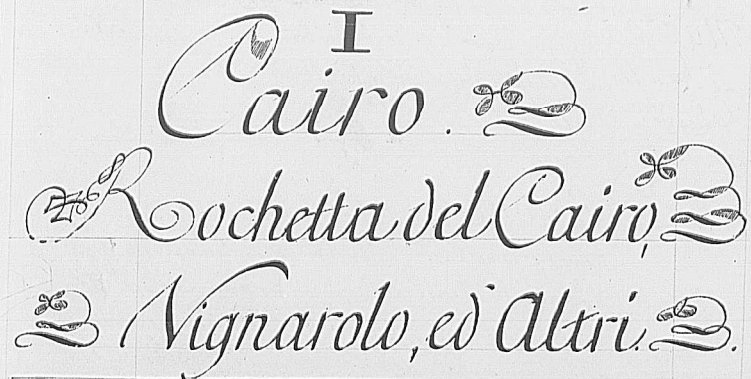 I
Cairo.
Rochetta del Cairo,
Vignarolo, ed Altri.